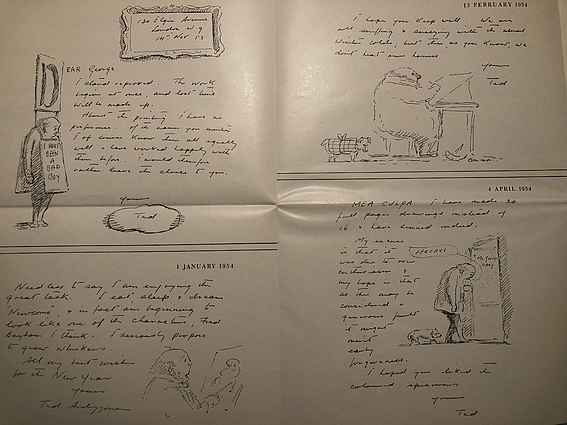 130 Elgin Avenue
London W 9
14th Nov 53
DEAR George
I stand reproved. The work
begins at once, and lost time
will be made up.
About the printing I have no
preference. Of the names you mention
I of course know them all equally
well & have worked happily with
them before. I would therefore
rather leave the choice to you.
Yours
Ted
I HAVE
BEEN
A
BAD
BOY
1 JANUARY 1954
Needless to say I am enjoying the
great task. I eat, sleep & dream
"Newcome", & in fact am beginning to
look like one of the characters, Fred
Bayham I think. I seriously propose
to grow whiskers
All my best wishes
for the New Year
Yours
Ted Ardizzone
13 FEBRUARY 1954
I hope you keep well. We are
all sniffing & sneezing with the usual
Winter colds, but then as you know, we
don't heat our houses
Yours
Ted
4 APRIL 1954
MEA CULPA I have made 20
full page drawings instead of
16 & have sinned indeed.
My excuse
is that it
was due to over
enthusiasm &
my hope is that
as this may be
considered a
generous fault
it might
merit
early
forgiveness.
I hope you liked the
coloured specimens
Yours
Ted
PECCAVI